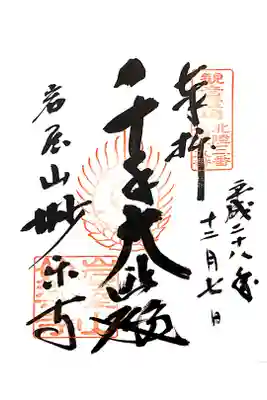 奉拝
観音霊場
北陸三番
平成二十八年
十二月七日
千手大悲殿
岩屋山妙楽寺